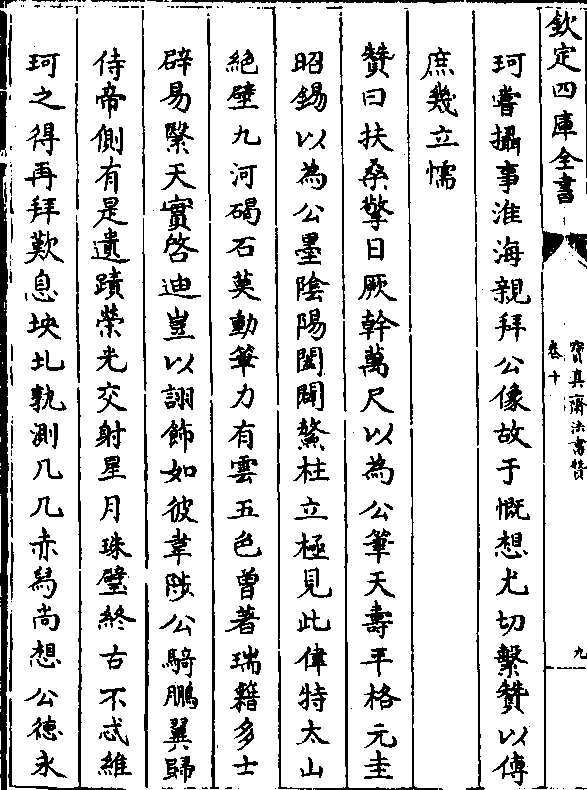 欽定四庫全書
寳真齋法書贊
卷十
九
珂嘗攝事淮海親拜公像故于慨想尤切繫贊以傳
庶幾立懦
贊曰扶桑擎日厥幹萬尺以為公筆天壽平格元圭
昭錫以為公墨陰陽闔闢鰲柱立極見此偉特太山
絶壁九河碣石莫動筆力有雲五色曾著瑞籍多士
辟易緊天實啓迪豈以詡飾如彼韋陟公騎鵬翼歸
侍帝側有是遺蹟榮光交射星月珠璧終古不忒維
珂之得再拜歎息坱圠孰測几几赤舄尚想公德永